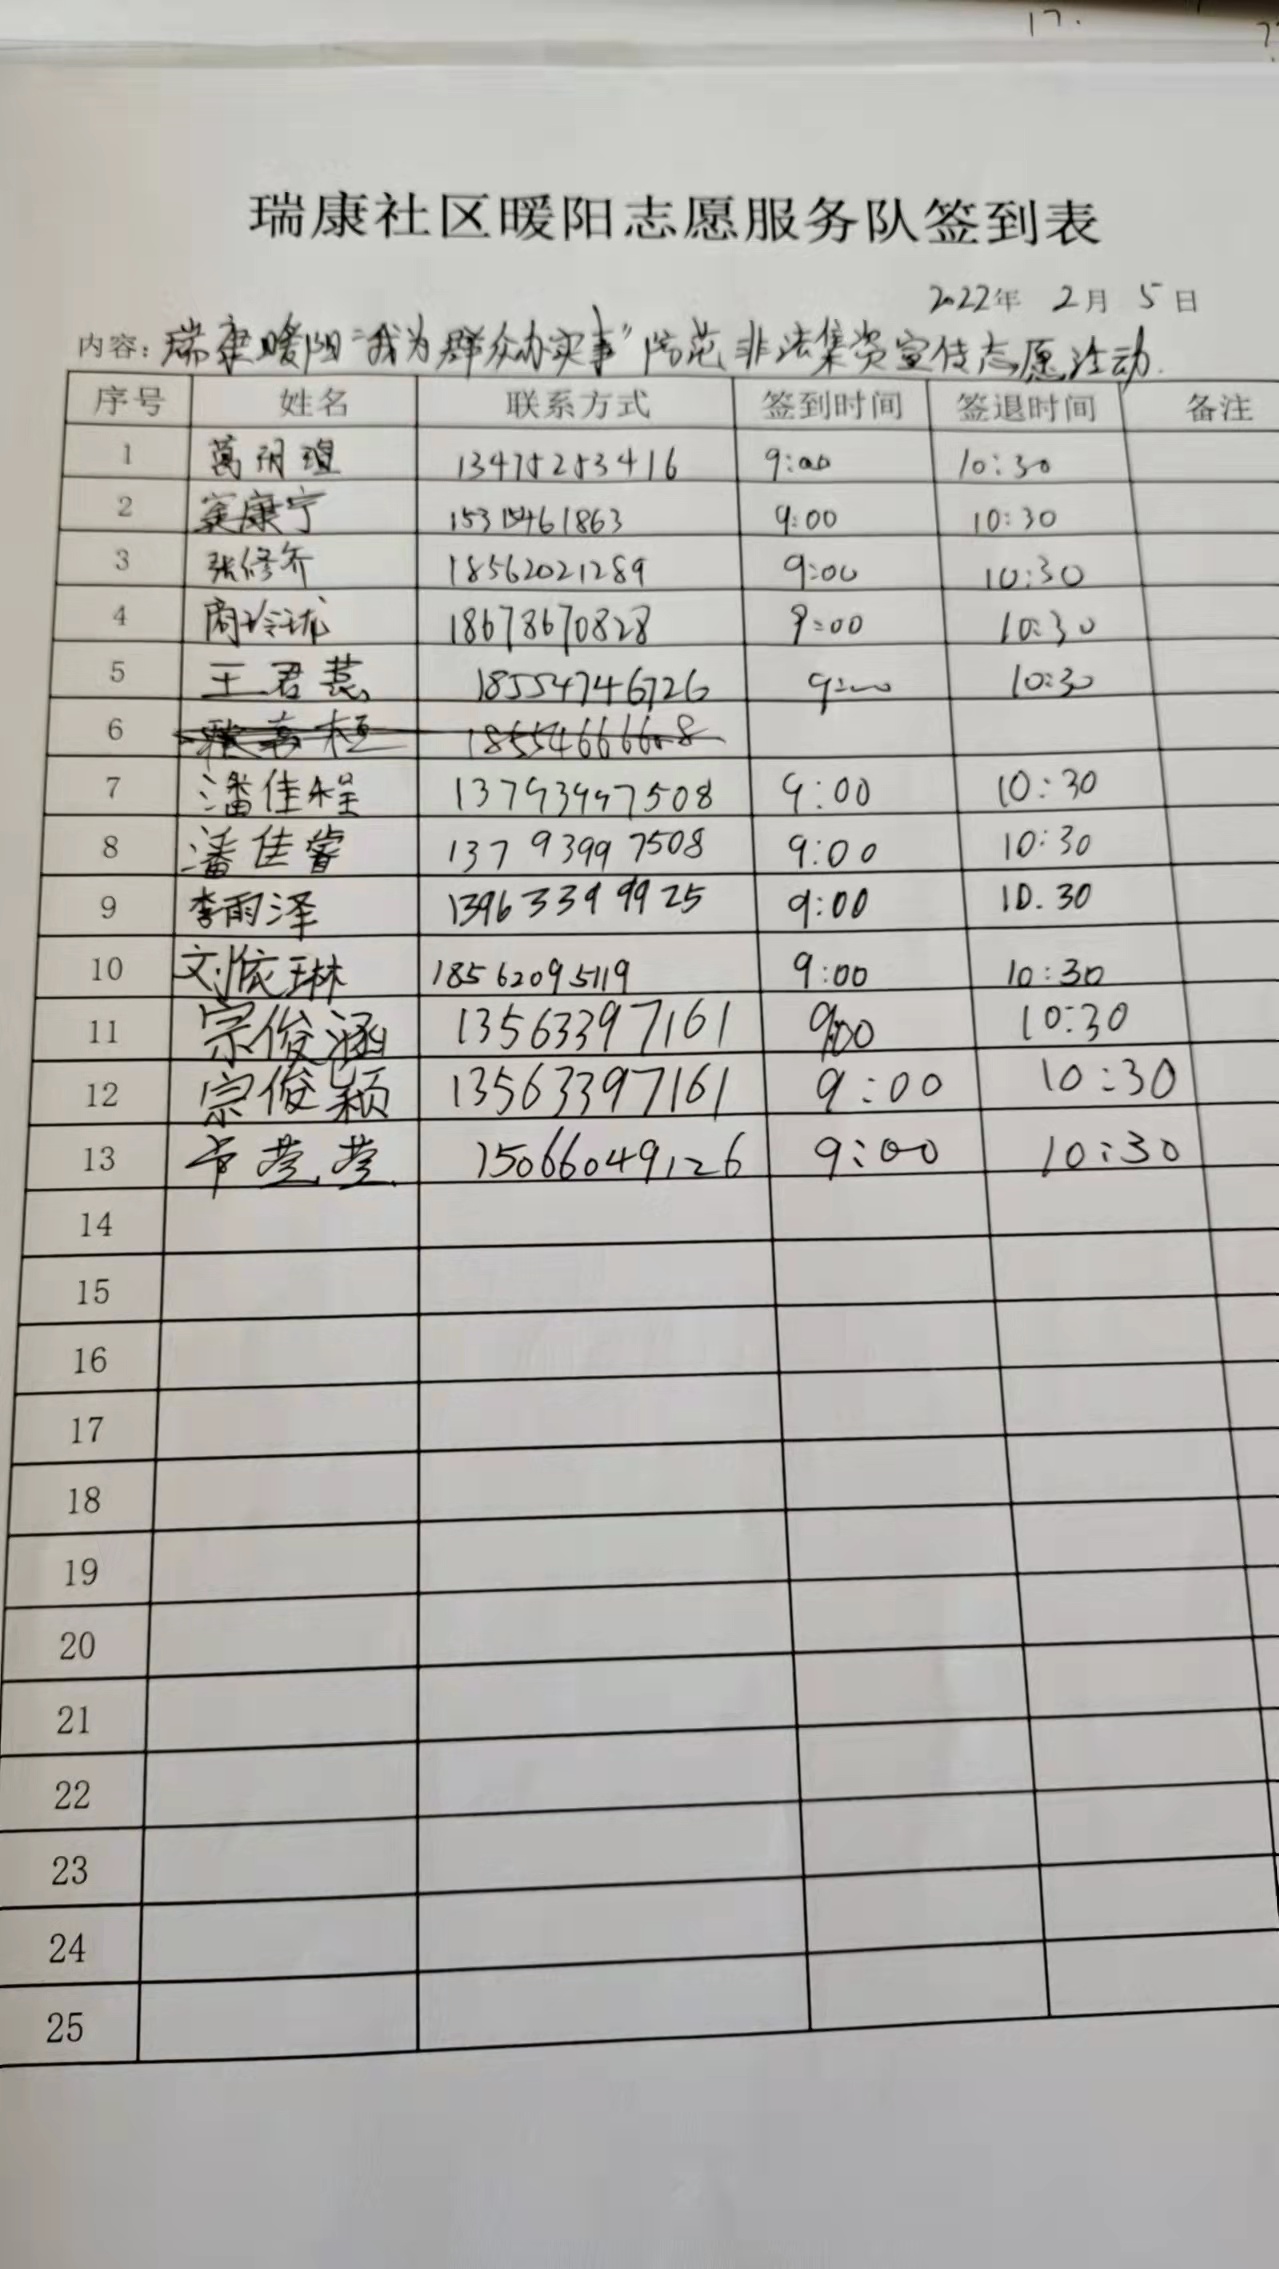 17.
瑞康社区暖阳志愿服务队签到表
2022年 2月 5日
内容：瑞康暖阳“我为群众办实事”防范非法集资宣传志愿活动.
序号 姓名 联系方式 签到时间 签退时间 备注
1 葛玥瑄 13475253416 9:00 10:30
2 窦康宁 9:00 10:30
3 张修齐 18562021289 9:00 10:30
4 商玲珑 18678670828 9:00 10:30
5 王君 18554746726 9:00 10:30
6
7 潘佳程 13793997508 9:00 10:30
8 潘佳睿 13793997508 9:00 10:30
9 李雨泽 13963399925 9:00 10.30
10 刘依琳 18562095119 9:00 10:30
11 宗俊涵 13563397161 9:00 10:30
12 宗俊颖 13563397161 9:00 10:30
13 15066049126 9:00 10:30
14
15
16
17
18
19
20
21
22
23
24
25